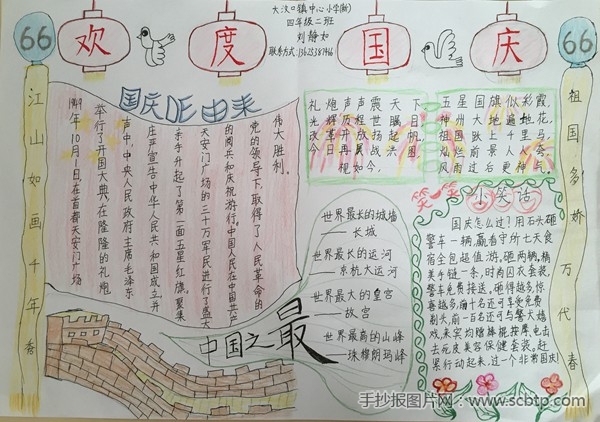 66
欢度国庆
66
大汶口镇中心小学
四年级二班
刘静如
联系方式:
江山如画千年秀
国庆DE由来
1949年10月1日在首都天安门广场
举行了开国大典,在隆隆的礼炮
声中,中央人民政府主席毛泽东
庄严宣告中华人民共和国成立并
亲手升起了第一面五星红旗。聚集
天安门广场的三十万军民进行了盛大
的阅兵和庆祝游行。中国人民在中国共产
党的领导下,取得了人民革命的
伟大胜利。
礼炮声声震天下
光辉历程世瞩目
改革开放扬起帆
今日再展洪图
视如今,
五星国旗似彩霞,
神州大地遍地花,
祖国跃上千里马,
灿烂前景人人夸
风雨过后更神气。
中国之最
世界最长的城墙
——长城
世界最长的运河
——京杭大运河
世界最大的皇宫
——故宫
世界最高的山峰
——珠穆朗玛峰
笑一笑
小笑话
国庆怎么过?用石头砸
警车一辆,赢看守所七天食
宿全包超值游,砸两辆,精
美手链一条,时尚囚衣套装,
警车免费接送。砸得越多,惊
喜越多,前十名还可享受免费
剃头,前一百名还可与警犬嬉
戏,来宾均赠辣椒、按摩、电击
去死皮美容保健套装。赶
紧行动起来,过一个非常国庆!
祖国多娇万代春
手抄报图片网:www.scbtp.com